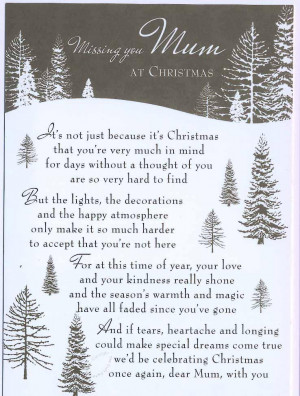 Missing you Mum
AT CHRISTMAS
It's not just because it's Christmas
that you're very much in mind
for days without a thought of you
are so very hard to find
But the lights, the decorations
and the happy atmosphere
only make it so much harder
to accept that you're not here
For at this time of year, your love
and your kindness really shone
and the season's warmth and magic
have all faded since you've gone
And if tears, heartache and longing
could make special dreams come true
we'd be celebrating Christmas
once again, dear Mum, with you